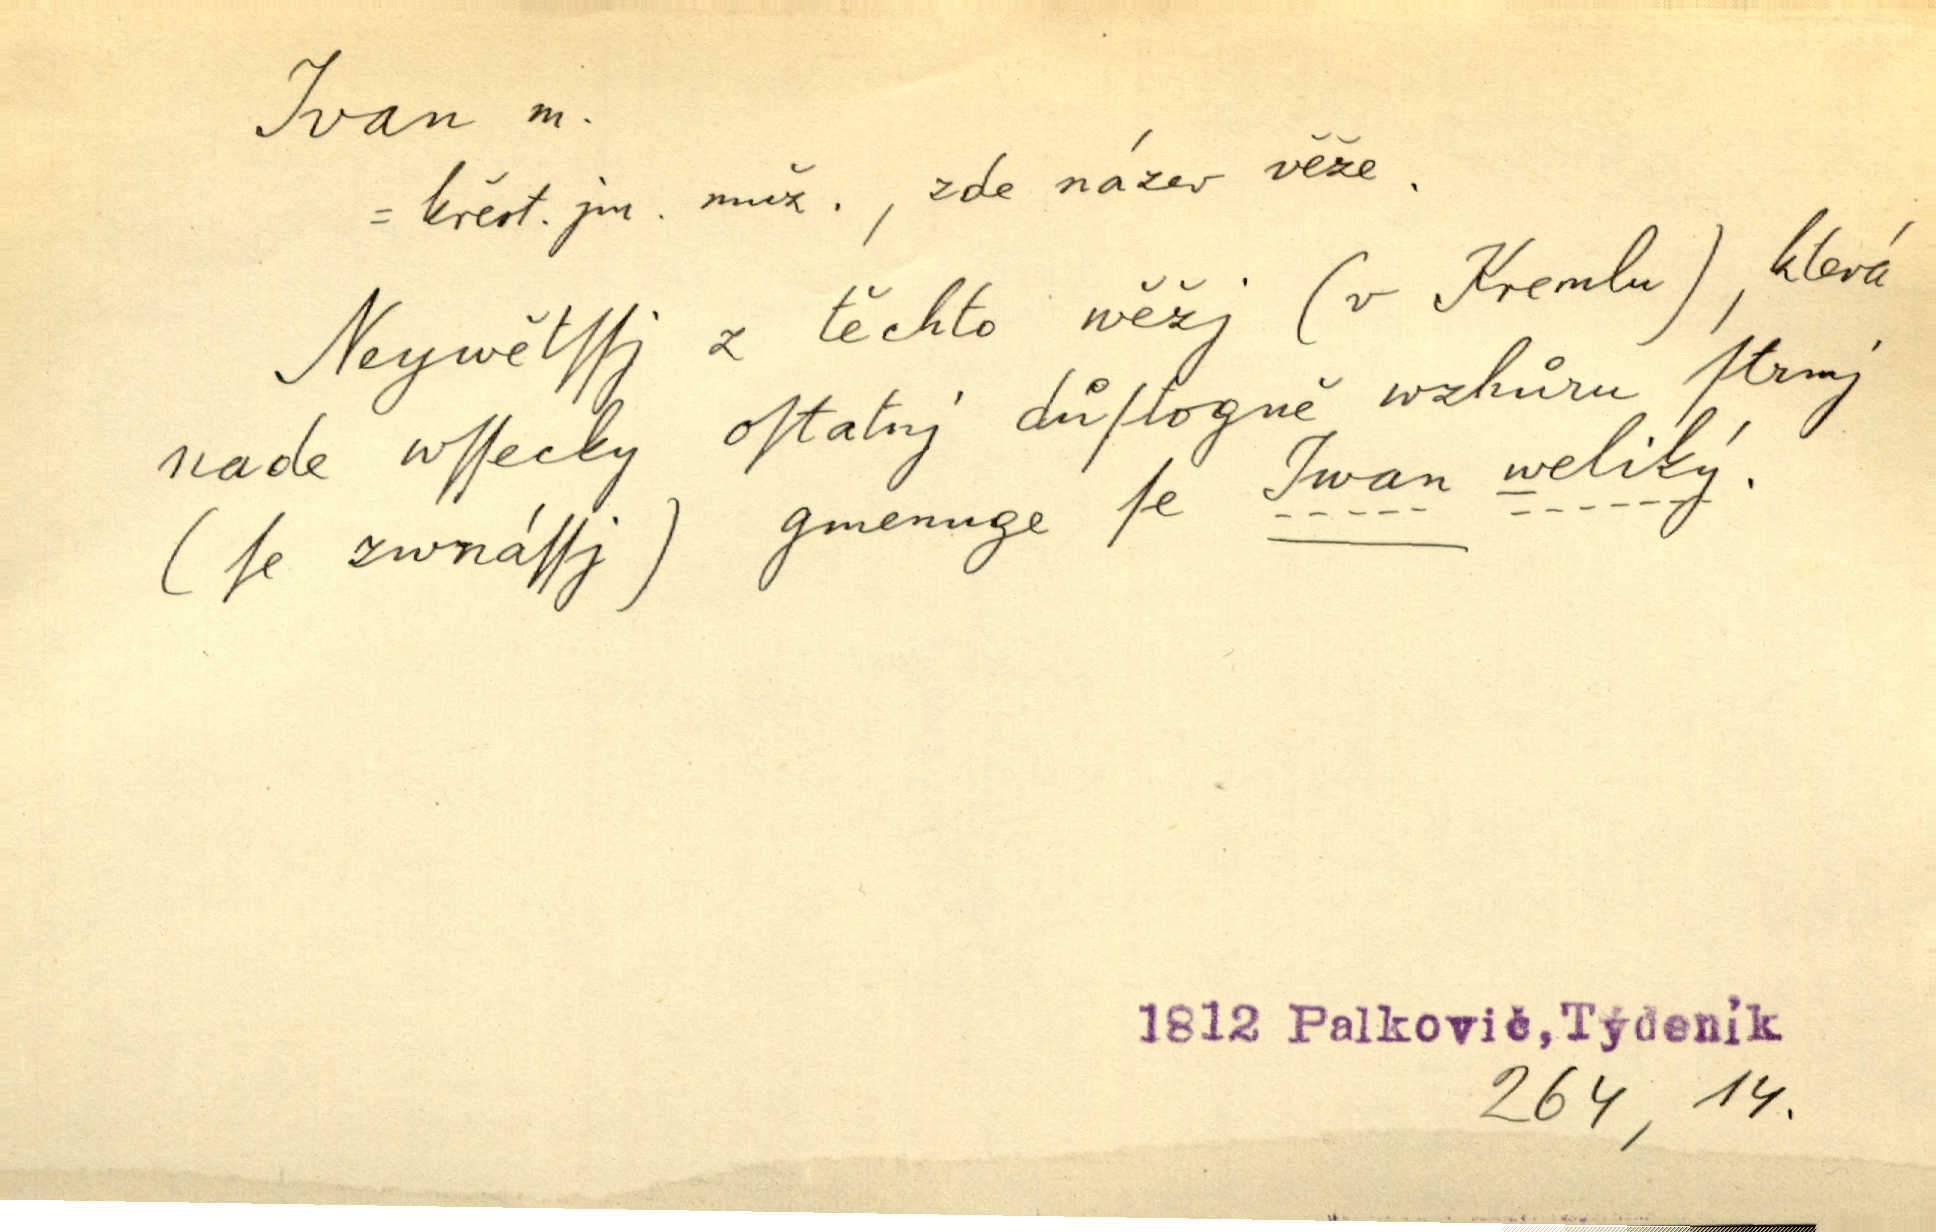 Ivan m.
= křest. jm. muž., zde název věže.
Neywětſſj z těchto wěžj (v Kremlu), která
nade wſſecky oſtatnj důſtogně wzhůru ſtrmj
(ſe zwnáſſj) gmenuge ſe Iwan weliký.
1812 Palkovič, Týdeník
264, 14.